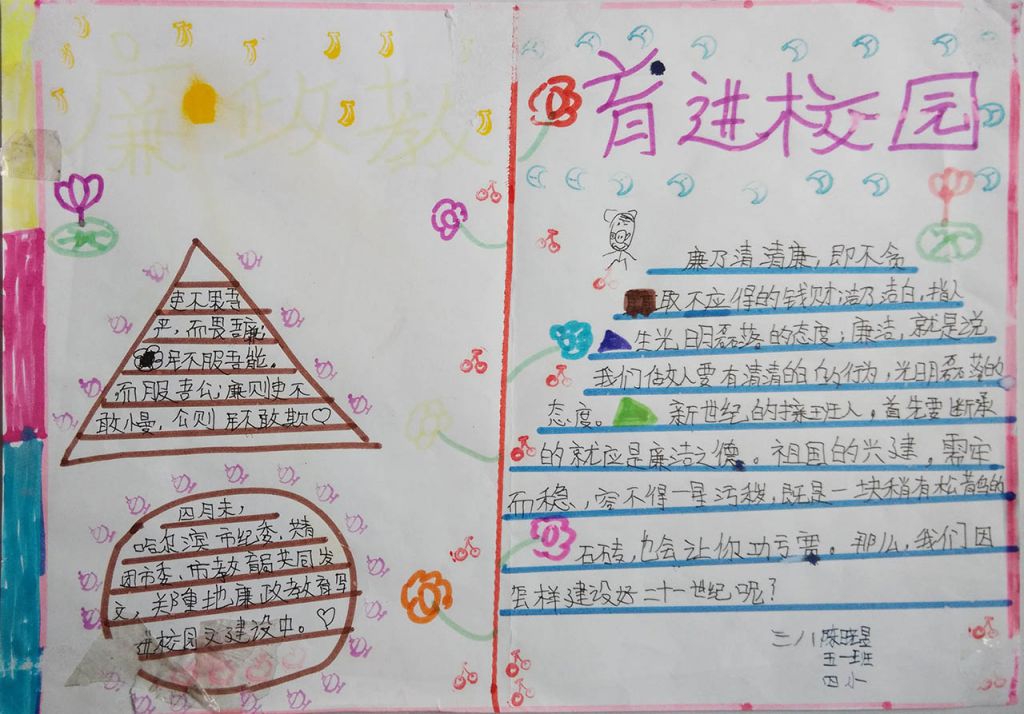 廉政教
育进校园
吏不畏吾
严，而畏吾廉；
民不服吾能。
而服吾公；廉则吏不
敢慢，公则民不敢欺♡
四月末，
哈尔滨市纪委、共青
团市委、市教育局共同发
文，郑重地廉政教育写
进校园文建设中。♡
廉乃清清廉，即不贪
取不应得的钱财；洁乃洁白，指人
生光明磊落的态度；廉洁，就是说
我们做人要有清清的白的行为，光明磊落的
态度。新世纪的接班人。首先要断承
的就应是廉洁之德。祖国的兴建，需牢
而稳，容不得一星污秽，既是一块稍有松
石砖，也会让你功亏
。那么，我们因
怎样建设好二十一世纪呢？
三八
五一班
四小